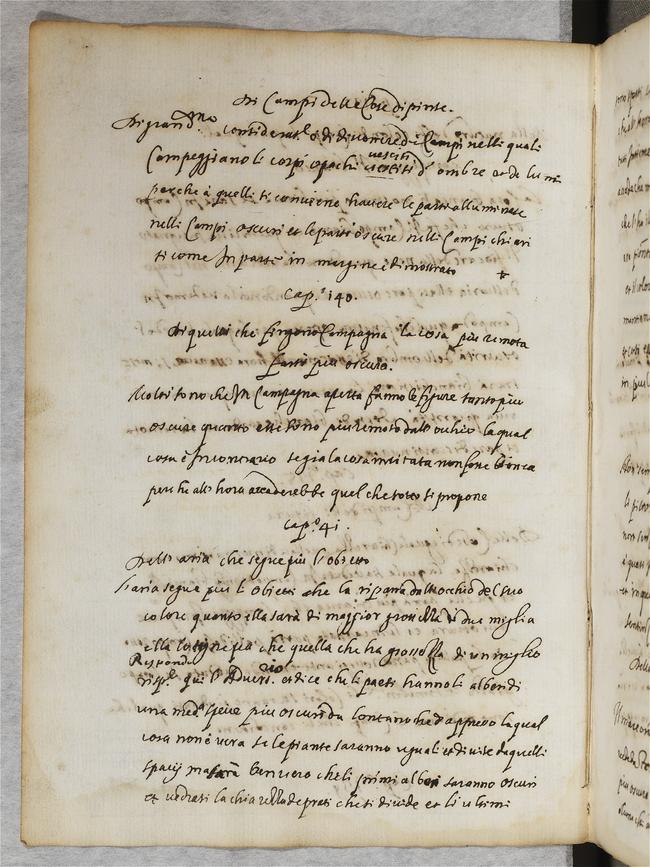 Di Campi delle Cose dipinte.
Di grand.ma considerat.e è di di nomi ed i Campi nelli quali
Campeggiano li corpi opachi vestiti d' ombre et di lumi
perche à quelli si conviene havere le parti alluminate
nelli Campi oscuri et le parti oscure nelli Campi chiari
si come In parte in margine è dimostrato
Cap.o 140.
Di quelli che fingono Campagna la cosa più remota
farsi più oscura.
Molti sono che In Campagna aperta fanno le figure tanto più
oscure quanto esse sono più remote dall' ochio la qual
cosa è In contrario se già la cosa imitata non fosse bianca
perche all' hora accaderebbe quel che sotto si propone
Cap.o 41.
Dell' aria che segue più l' obietto
L'aria segue più l' obietti che la separa dall' occhio del suo
colore quanto ella sarà di maggior grossezza di due miglia
ella lo tigne più che quella che ha grossezza di un miglio
Responde
risp.e qui l' Adversario et dice che li paesi hanno li alberi di
una med.a spetie più oscuri da lontano che d' appresso la qual
cosa non è vera se le piante saranno uguali et divise da quelli
spatij ma sarà ben vero che li primi alberi saranno oscuri
et vedrasi la chiarezza de prati che li divide et li ultimi